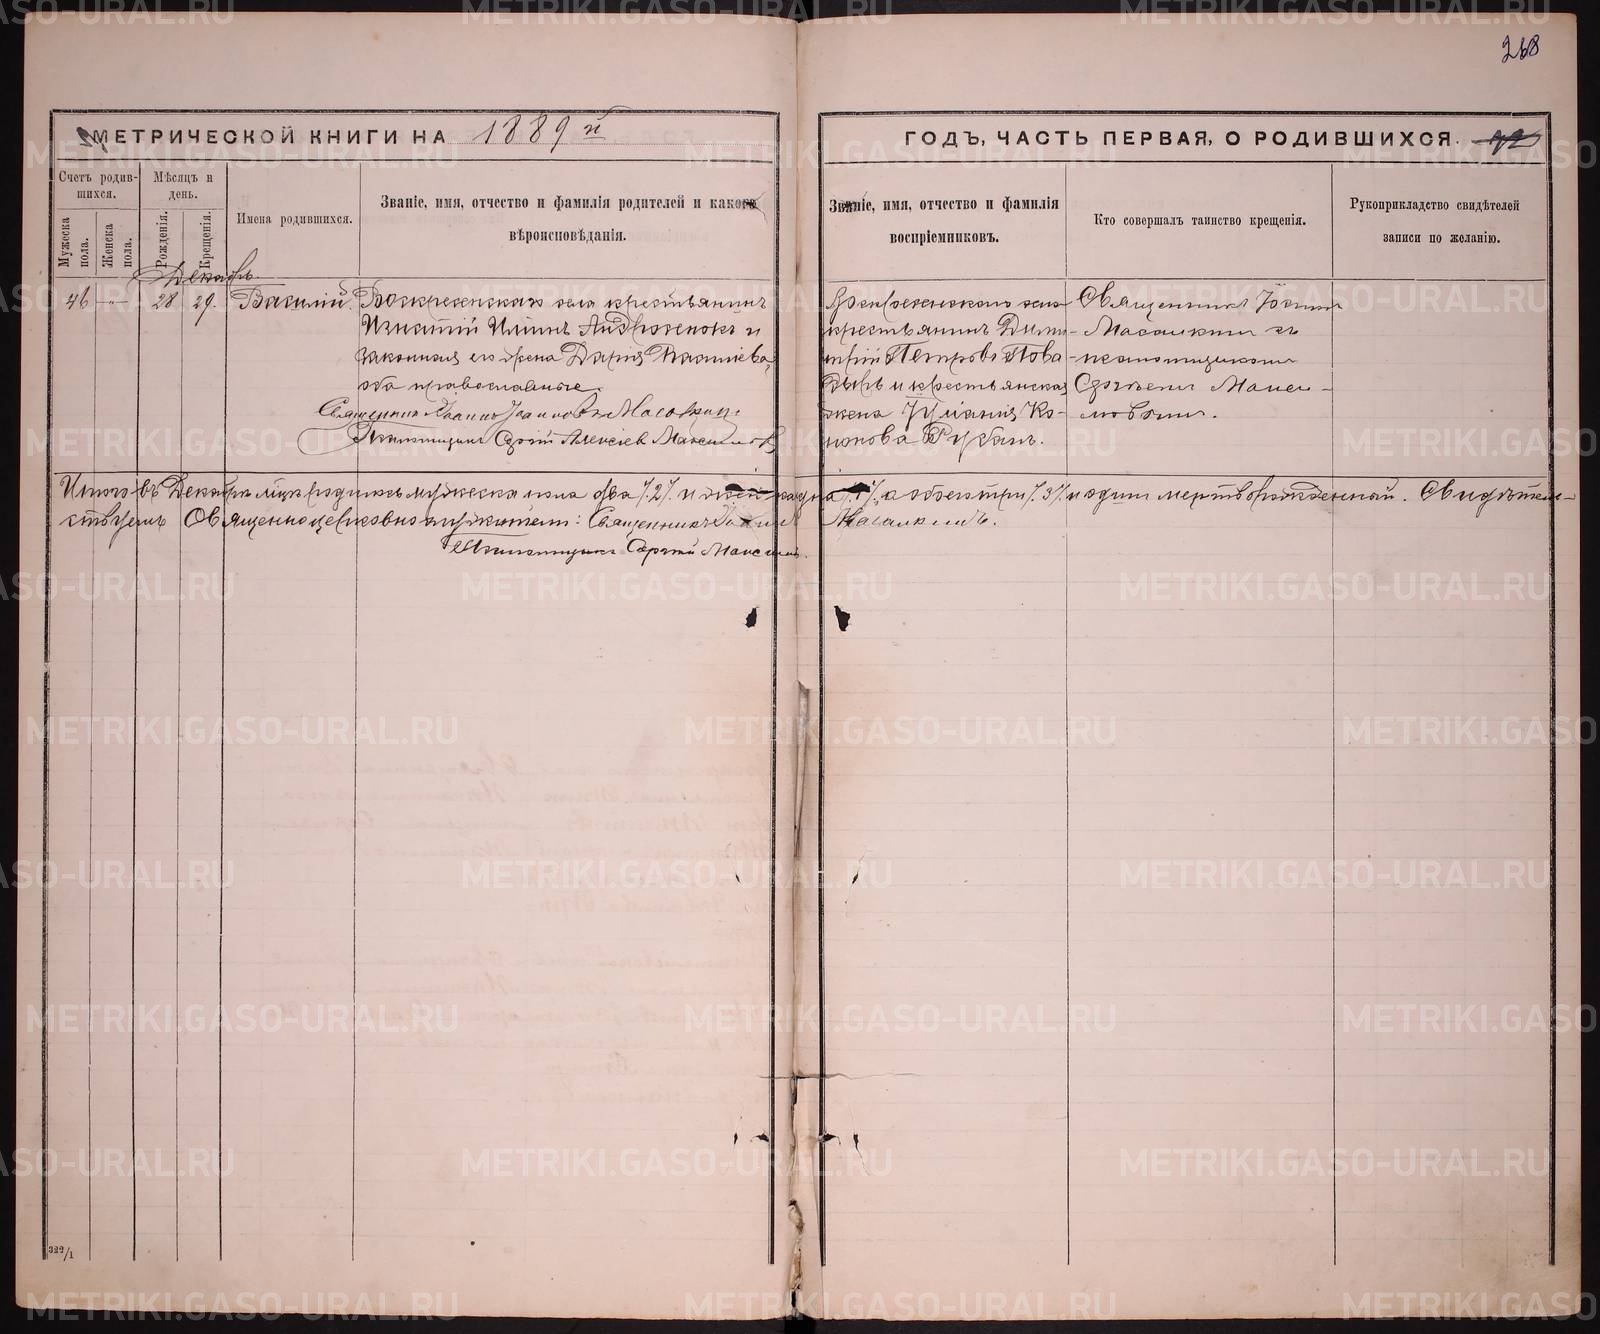 268
МЕТРИЧЕСКОЙ КНИГИ НА 1889 й
ГОДЪ, ЧАСТЬ ПЕРВАЯ, О РОДИВШИХСЯ.
Счетъ родив-
шихся.
Мѣсяцъ и
день.
Мужеска
пола.
Женска
пола.
Рожденія.
Крещенія.
Имена родившихся.
Званіе, имя, отчество и фамилія родителей и какого
вѣроисповѣданія.
Званіе, имя, отчество и фамилія
воспріемниковъ.
Кто совершалъ таинство крещенія.
Рукоприкладство свидѣтелей
записи по желанію.
Декабрь.
46 — 28 29. Василій.
Воскресенскаго села крестьянинъ
Игнатій Ильинъ и
законная его жена Дарія Васильева,
оба православные.
Священникъ Іоаннъ Іоанновъ
Псаломщикъ Сергій Алексіев Максимов
Воскресенскаго села
крестьянинъ Дими-
трій Петровъ Пова-
и крестьянская
жена Іуліанія Ко-
нонова Рубанъ.
Священникъ Іоаннъ
съ
псаломщикомъ
Сергіемъ Макси-
мовымъ.
Итого въ Декабрѣ родилось мужеска пола два /2/ и женска одна /1/, а обоего три /3/ и одинъ мертворожденный. Свидѣтель-
ствуемъ Священноцерковнослужители: Священникъ Іоаннъ
Псаломщикъ Сергій Максимовъ.
METRIKI.GASO-URAL.RU
322/1